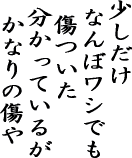 少しだけ
なんぼワシでも
傷ついた
分かっているが
かなりの傷や